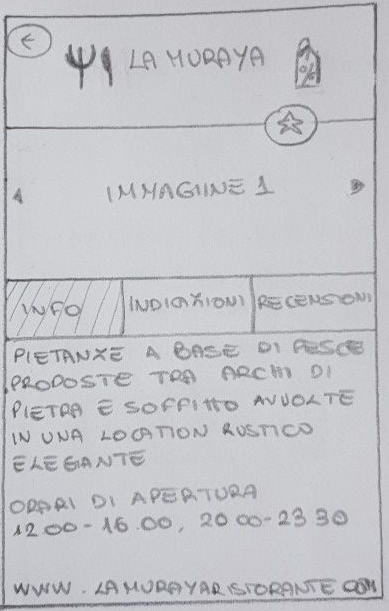 LA MURAYA
%
IMMAGIINE 1
INFO
INDICAZIONI
RECENSIONI
PIETANZE A BASE DI PESCE
PROPOSTE TRA ARCHI DI
PIETRA E SOFFITTO AVVOLTE
IN UNA LOCATION RUSTICO
ELEGANTE
ORARI DI APERTURA
12.00-16.00, 20 00-23 30
WWW.LAMURAYARISTORANTE.COM